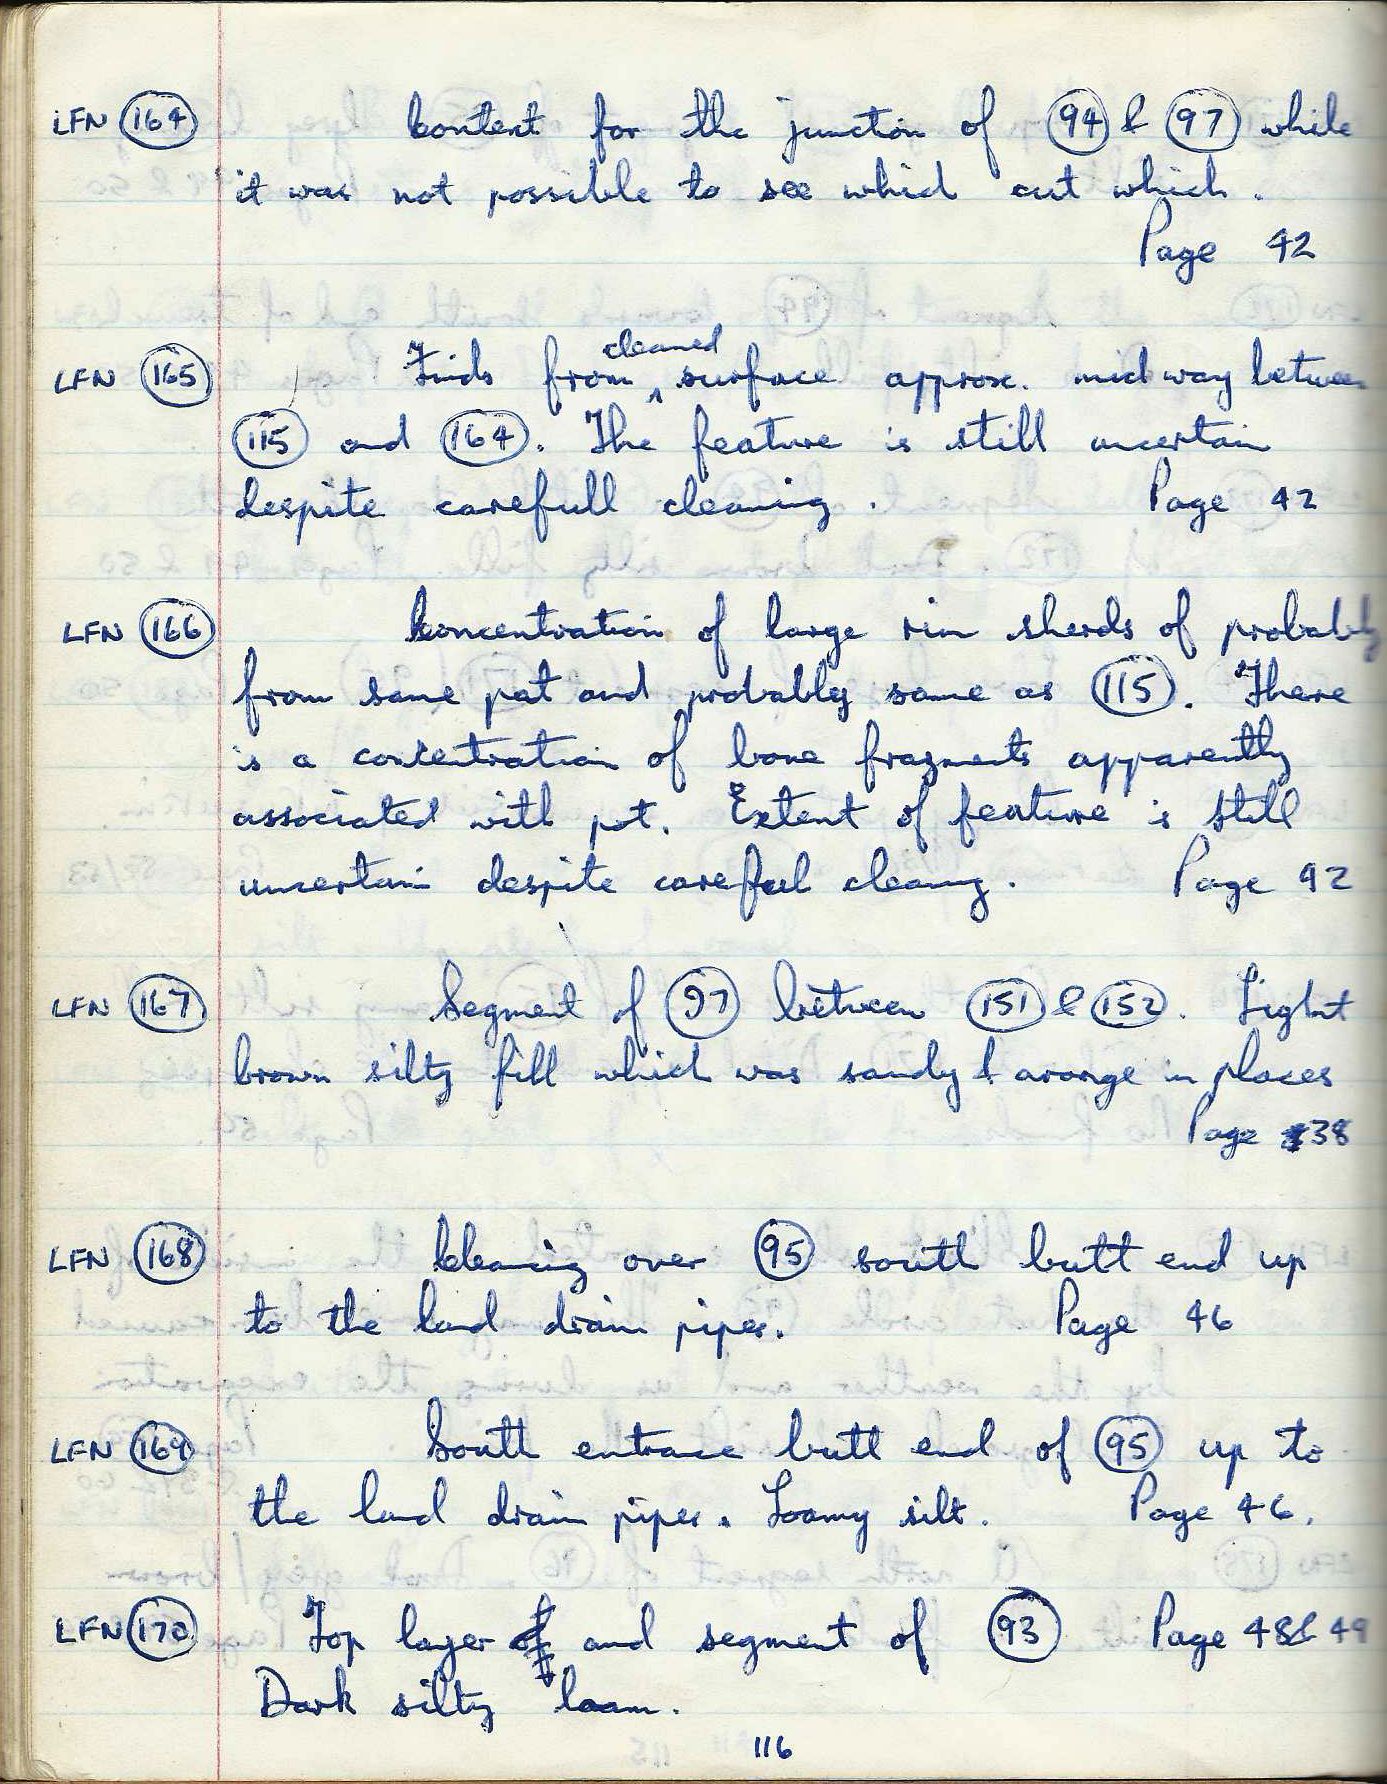 LFN 164 Context for the junction of 94 & 97 while
it was not possible to see which cut which.
Page 42
LFN 165 Finds from cleaned surface approx. midway between
115 and 164. The feature is still uncertain
despite carefull cleaning. Page 42
LFN 166 Concentration of large rim sherds of probably
from same pot and probably same as 115. There
is a concentration of bone fragments apparently
associated with pot. Extent of feature is still
uncertain despite careful cleaning. Page 42
LFN 167 Segment of 97 between 151 & 152. Light
brown silty fill which was sandy & orange in places
Page 38
LFN 168 Cleaning over 95 south butt end up
to the land drain pipes. Page 46
LFN 169 South entrace butt end of 95 up to
the land drain pipes. Loamy silt. Page 46.
LFN 170 Top layer of and segment of 93 Page 48 & 49
Dark silty loam.
116